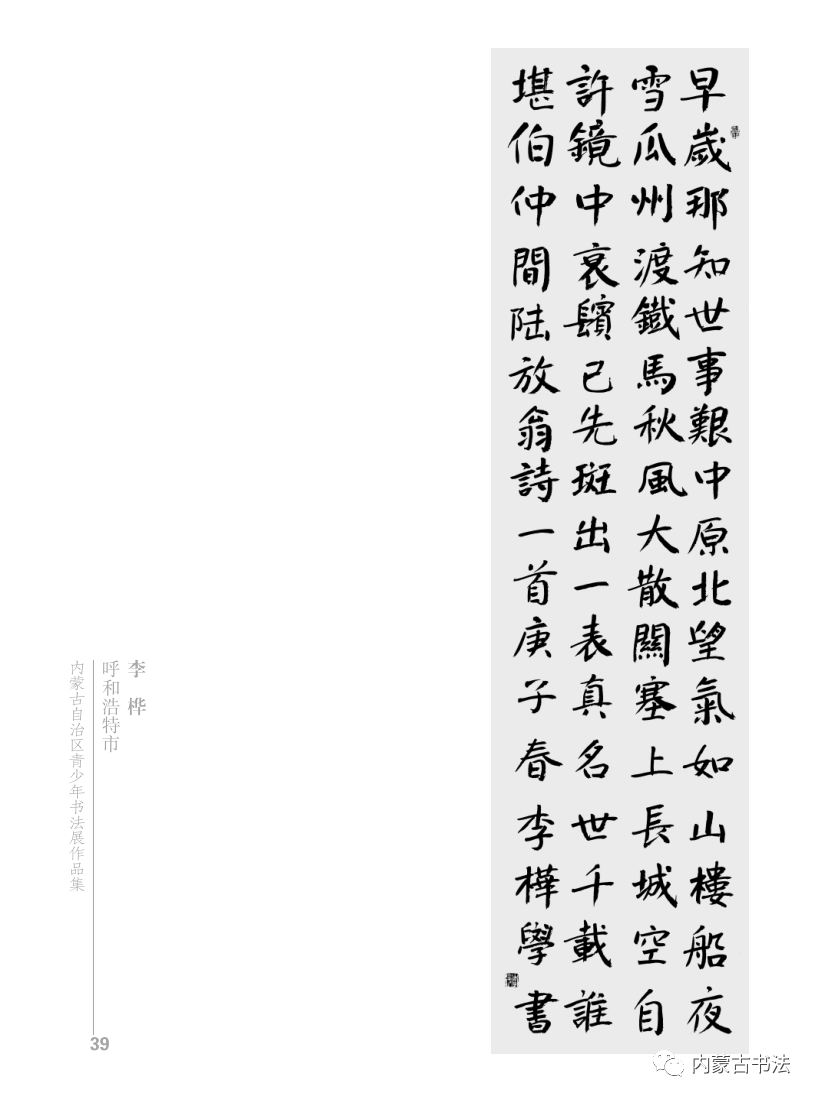 早歲那知世事艱中原北望氣如山樓船夜
雪瓜州渡鐵馬秋風大散關塞上長城空自
許鏡中衰鬢已先斑出一表真名世千載誰
堪伯仲間陆放翁詩一首庚子春李樺學書
李 桦
呼和浩特市
内蒙古自治区青少年书法展作品集
39
内蒙古书法